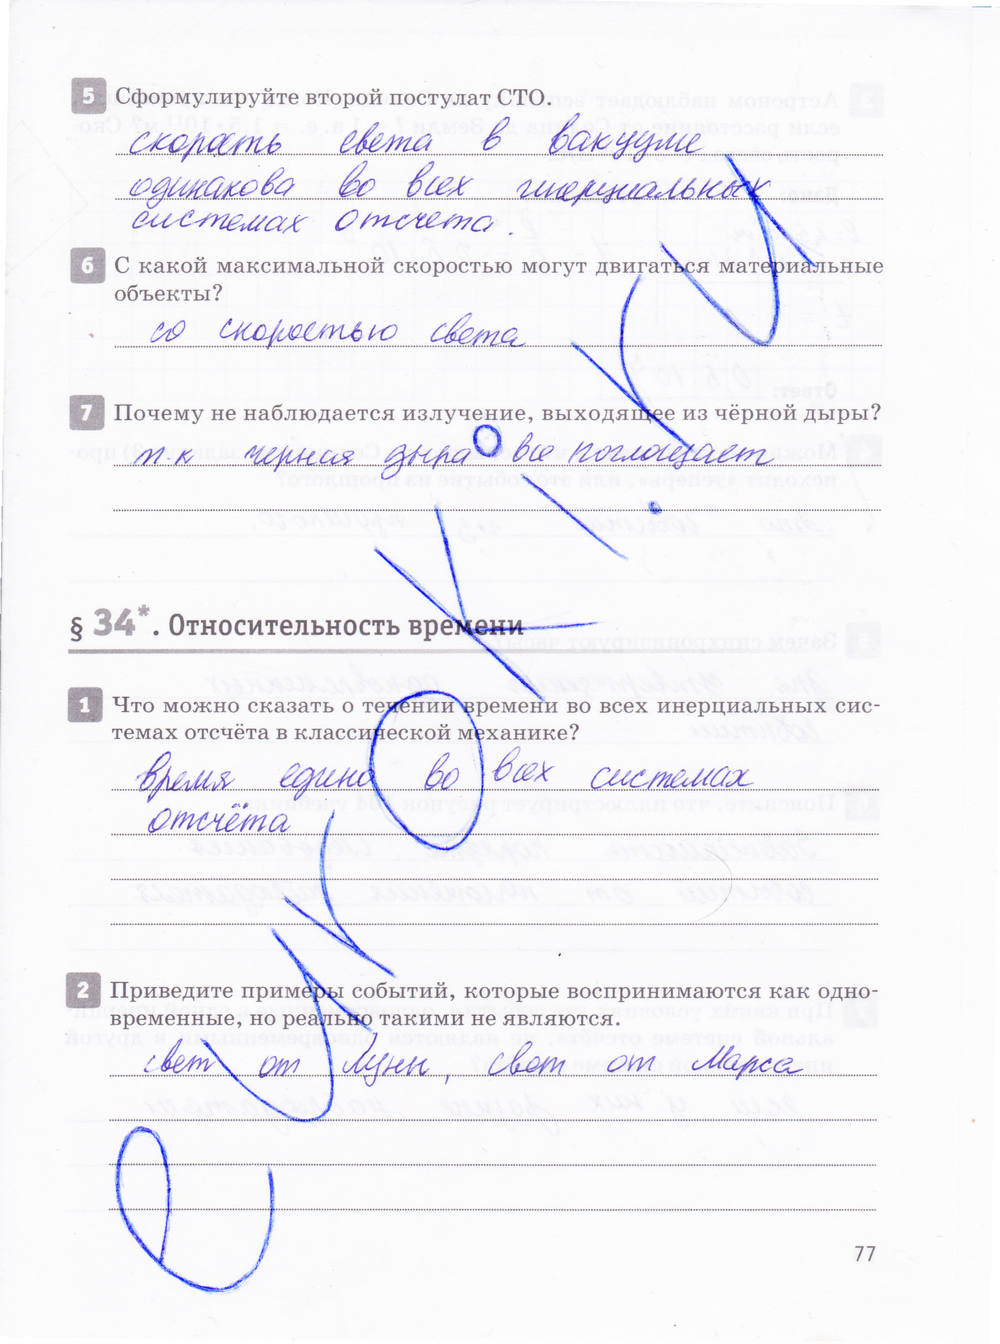 5 Сформулируйте второй постулат СТО.
скорость света в вакууме
одинакова во всех инерциальных
системах отсчета.
6 С какой максимальной скоростью могут двигаться материальные
объекты?
со скоростью света
7 Почему не наблюдается излучение, выходящее из чёрной дыры?
т.к черная дыра все поглощает
§ 34*. Относительность времени
1 Что можно сказать о течении времени во всех инерциальных сис-
темах отсчёта в классической механике?
время едино во всех системах
отсчёта
2 Приведите примеры событий, которые воспринимаются как одно-
временные, но реально такими не являются.
свет от Луны, свет от Марса
77